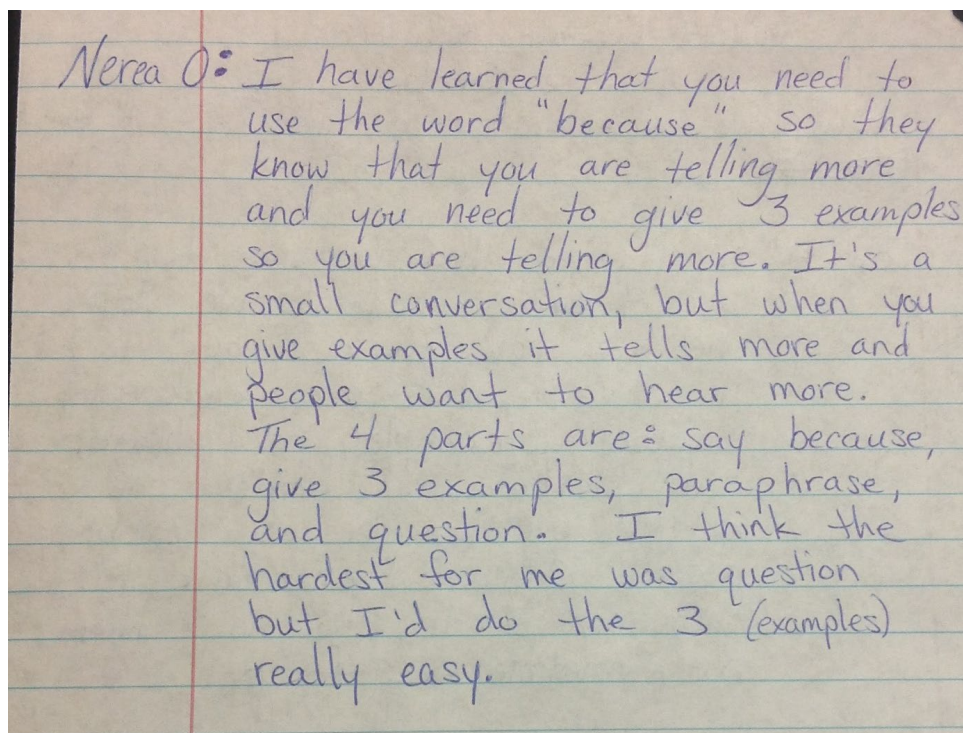 Nerea O: I have learned that you need to
use the word "because", so they
know that you are telling more
and you need to give 3 examples
so you are telling more. It's a
small conversation, but when you
give examples it tells more and
people want to hear more.
The 4 parts are: say because,
give 3 examples, paraphrase,
and question. I think the
hardest for me was question
but I'd do the 3 (examples)
really easy.